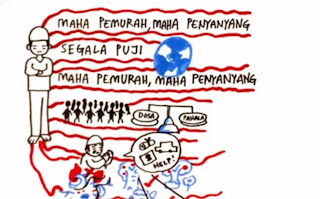 MAHA PEMURAH, MAHA PENYANYANG
SEGALA PUJI
MAHA PEMURAH, MAHA PENYANYANG
DOSA
PAHALA
HELP!